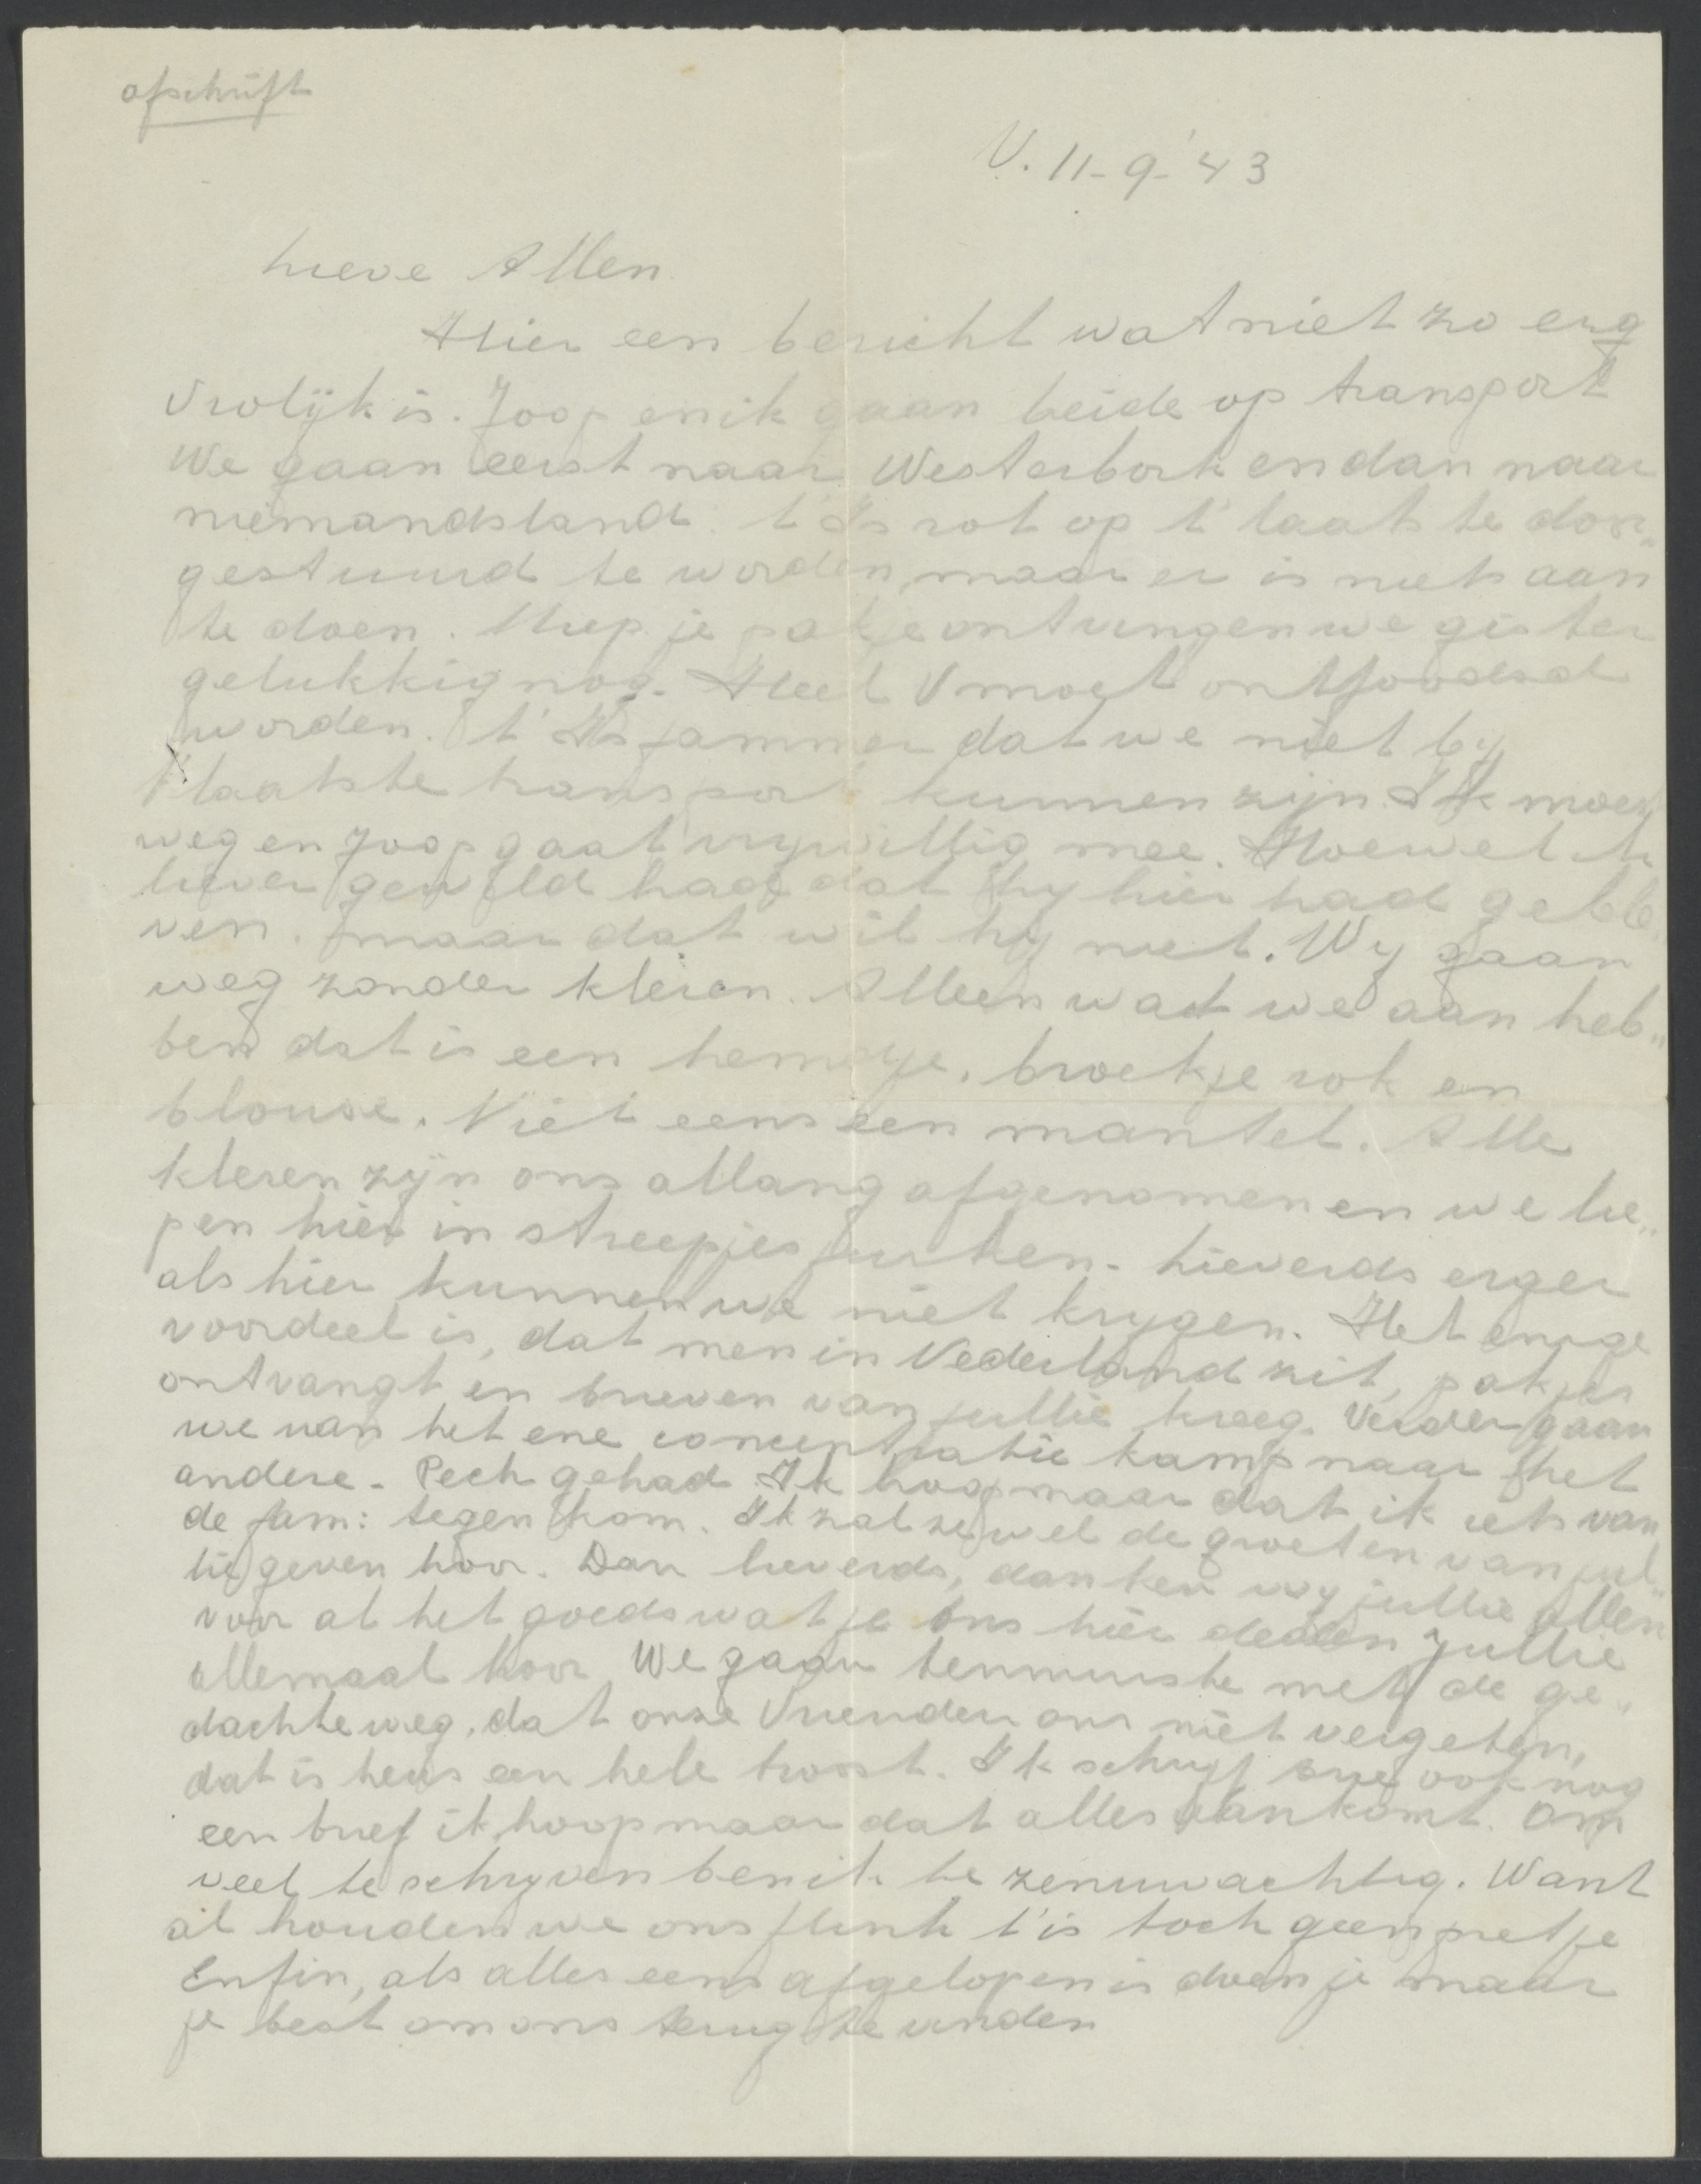 afschrift
V. 11-9-'43
Lieve Allen
Hier een bericht wat niet zo erg
vrolijk is. Joop en ik gaan beide op transport
We gaan eerst naar Westerbork en dan naar
niemandsland. t' Is rot op t' laatste door"
gestuurd te worden, maar er is niets aan
te doen. Miep je pakje ontvingen we gister
gelukkig nog. Heel V moet ontjoodsd
worden. t' Is jammer dat we niet by
t' laatste transport kunnen zijn. Ik moet
weg en Joop gaat vrywillig mee. Hoewel ik
liever gewild had dat hy hier had geble"
ven. maar dat wil hy niet. Wy gaan
weg zonder kleren. Alleen wat we aan heb"
ben dat is een hemdje, broekje rok en
blouse. Niet eens een mantel. Alle
kleren zijn ons allang afgenomen en we lie"
pen hier in streepjes jurken. Lieverds erger
als hier kunnen we niet krygen. Het enige
voordeel is, dat men in Nederland zit, pakjes
ontvangt en brieven van jullie kreeg. Verder gaan
we van het ene concentratie kamp naar het
andere. Pech gehad. Ik hoop maar dat ik iets van
de fam: tegen kom. Ik zal ze wel de groeten van jul"
lie geven hoor. Dan lieverds, danken wy jullie allen
voor al het goeds wat je ons hier deden jullie
allemaal hoor We gaan tenminste met de ge"
dachte weg, dat onze Vrienden ons niet vergeten,
dat is heus een hele troost. Ik schryf ook nog
een brief ik hoop maar dat alles aankomt. Om
veel te schryven ben ik te zenuwachtig. Want
al houden we ons flink t' is toch geen pretje
Enfin, als alles eens afgelopen is doen je maar
je best om ons terug te vinden